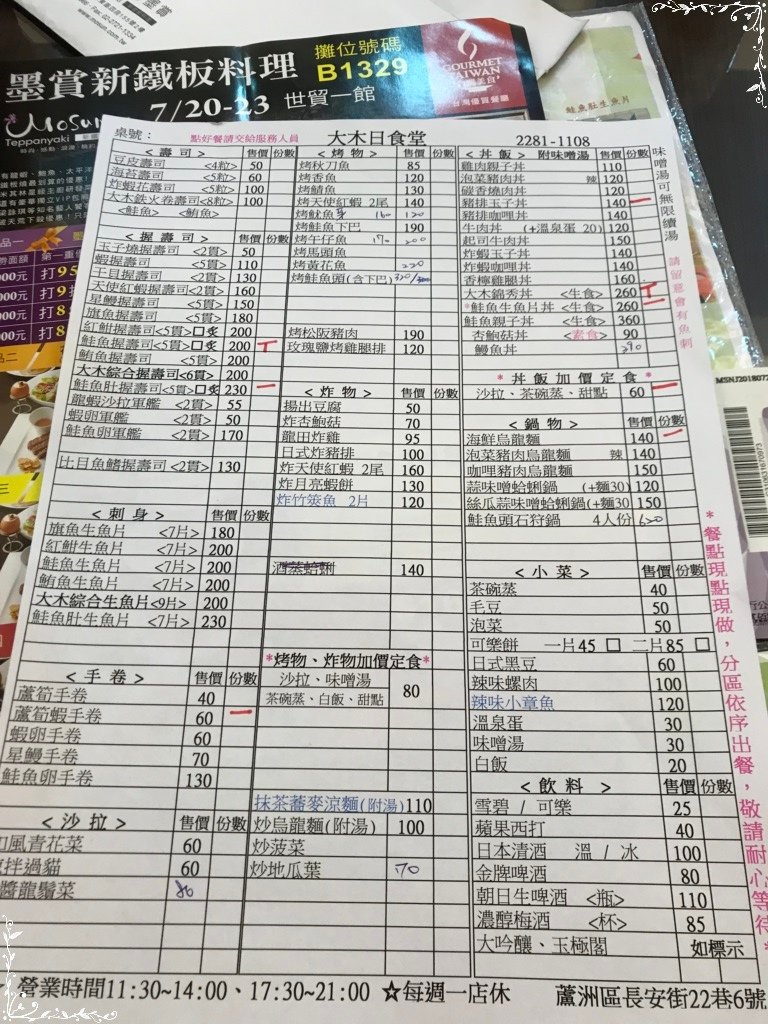 墨賞新鐵板料理
攤位號碼
B1329
7/20-23 世貿一館
Mosun
Teppanyaki
GOURMET
TAIWAN
www.mosun.com.tw
鮭魚肚生魚片
桌號：
點好餐請交給服務人員
大木日食堂
2281-1108
<壽司> 售價 份數
豆皮壽司 <4粒> 50
海苔壽司 <5粒> 60
炸蝦花壽司 <5貫> 100
大木鐵火卷壽司<8貫> 100
<鮭魚> <鮪魚>
<握壽司> 售價 份數
玉子燒握壽司 <2貫> 50
蝦握壽司 <5貫> 110
干貝握壽司 <2貫> 130
天使紅蝦握壽司<2貫> 160
星鰻握壽司 <5貫> 150
旗魚握壽司 <5貫> 180
紅魽握壽司<5貫>□炙 200
鮭魚握壽司<5貫>□炙 200
鮪魚握壽司 <5貫> 200
大木綜合握壽司<6貫> 200
鮭魚肚握壽司<5貫>□炙 230
龍蝦沙拉軍艦 <2貫> 55
蝦卵軍艦 <2貫> 50
鮭魚卵軍艦 <2貫> 170
比目魚鰭握壽司 <2貫> 130
<刺身> 售價 份數
旗魚生魚片 <7片> 180
紅魽生魚片 <7片> 200
鮭魚生魚片 <7片> 200
鮪魚生魚片 <7片> 200
大木綜合生魚片<9片> 200
鮭魚肚生魚片 <7片> 230
<手卷> 售價 份數
蘆筍手卷 40
蘆筍蝦手卷 60
蝦卵手卷 60
星鰻手卷 70
鮭魚卵手卷 130
<沙拉> 售價 份數
和風青花菜 60
涼拌過貓 60
醬龍鬚菜 80
<烤物> 售價 份數
烤秋刀魚 85
烤香魚 120
烤鯖魚 130
烤天使紅蝦 2尾 140
烤魷魚 160 120
烤鮭魚下巴 190
烤午仔魚 170 200
烤馬頭魚
烤黃花魚 220
烤鮭魚頭(含下巴)
烤松阪豬肉 190
玫瑰鹽烤雞腿排 120
<炸物> 售價 份數
揚出豆腐 50
炸杏鮑菇 70
龍田炸雞 95
日式炸豬排 100
炸天使紅蝦 2尾 160
炸月亮蝦餅 130
炸竹筴魚 2片 120
酒蒸蛤蜊 140
*烤物、炸物加價定食*
沙拉、味噌湯
茶碗蒸、白飯、甜點
80
抹茶蕎麥涼麵(附湯) 110
炒烏龍麵(附湯) 100
炒菠菜
炒地瓜葉 70
<丼飯> 附味噌湯 售價 份數
雞肉親子丼 110
泡菜豬肉丼 辣 120
碳香燒肉丼 120
豬排玉子丼 140
豬排咖哩丼 140
牛肉丼 (+溫泉蛋 20) 120
起司牛肉丼 150
炸蝦玉子丼 140
炸蝦咖哩丼 140
香檸雞腿丼 160
大木錦秀丼 <生食> 260
*鮭魚生魚片丼 <生食> 260
鮭魚親子丼 <生食> 360
杏鮑菇丼 <素食> 90
鰻魚丼 290
*丼飯加價定食*
沙拉、茶碗蒸、甜點 60
<鍋物> 售價 份數
海鮮烏龍麵 140
泡菜豬肉烏龍麵 辣 140
咖哩豬肉烏龍麵 150
蒜味噌蛤蜊鍋 (+麵30) 120
絲瓜蒜味噌蛤蜊鍋(+麵30) 150
鮭魚頭石狩鍋 4人份 620
<小菜> 售價 份數
茶碗蒸 40
毛豆 50
泡菜 50
可樂餅 一片45 □ 二片85 □
日式黑豆 60
辣味螺肉 100
辣味小章魚 120
溫泉蛋 30
味噌湯 30
白飯 20
<飲料> 售價 份數
雪碧 / 可樂 25
蘋果西打 40
日本清酒 溫 / 冰 100
金牌啤酒 80
朝日生啤酒 <瓶> 110
濃醇梅酒 <杯> 85
大吟釀、玉極閣 如標示
味噌湯可無限續湯
請留意會有魚刺
*餐點現點現做，分區依序出餐，敬請耐心等待*
營業時間11:30~14:00、17:30~21:00 ☆每週一店休 蘆洲區長安街22巷6號